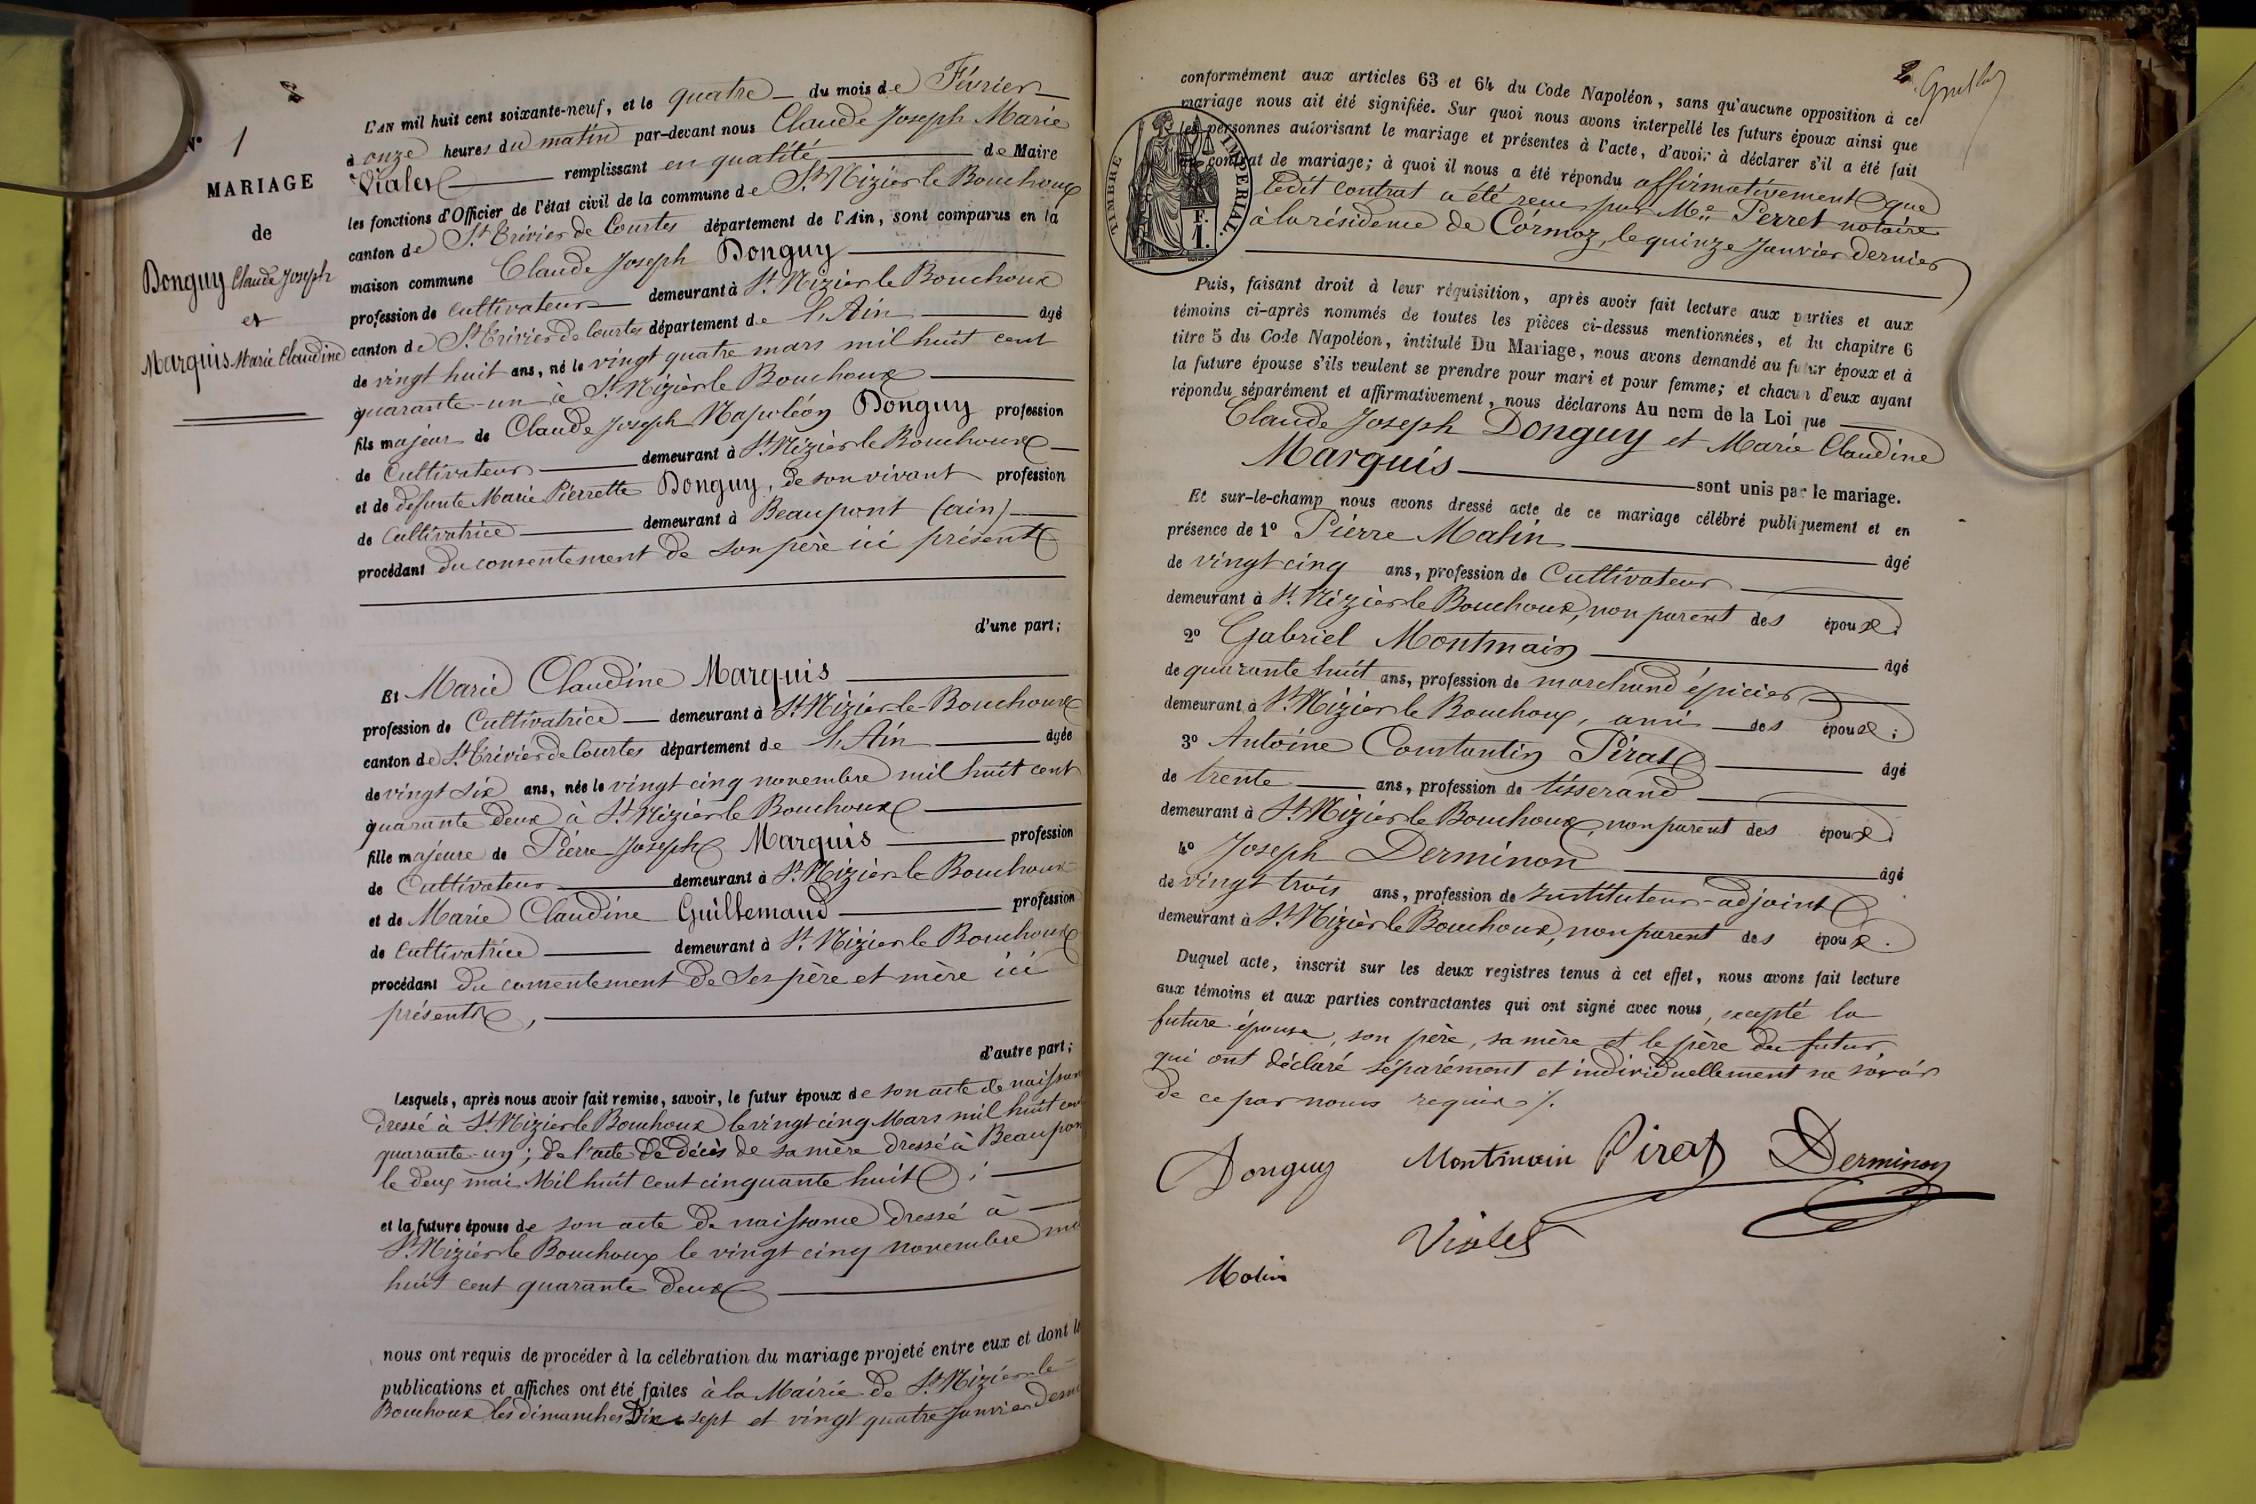 N° 1
MARIAGE
de
Donguy Claude Joseph
et
Marquis Marie Claudine
L'AN mil huit cent soixante-neuf, et le quatre du mois de Février
à onze heures du matin par-devant nous Claude Joseph Marie
Violet remplissant en qualité de Maire
les fonctions d'Officier de l'état civil de la commune de St Nizier le Bouchoux
canton de St Trivier de Courtes département de l'Ain, sont comparus en la
maison commune Claude Joseph Donguy
profession de cultivateur demeurant à St Nizier le Bouchoux
canton de St Trivier de Courtes département de l'Ain âgé
de vingt huit ans, né le vingt quatre mars mil huit cent
quarante-un à St Nizier le Bouchoux
fils majeur de Claude Joseph Napoléon Donguy profession
de Cultivateur demeurant à St Nizier le Bouchoux
et de défunte Marie Pierrette Donguy, de son vivant profession
de Cultivatrice demeurant à Beaupont (ain)
procédant du consentement de son père ici présent
d'une part;
Et Marie Claudine Marquis
profession de Cultivatrice demeurant à St Nizier-le-Bouchoux
canton de St Trivier de Courtes département de l'Ain âgée
de vingt six ans, née le vingt cinq novembre mil huit cent
quarante deux à St Nizier le Bouchoux
fille majeure de Pierre Joseph Marquis profession
de Cultivateur demeurant à St Nizier le Bouchoux
et de Marie Claudine Guillemaud profession
de Cultivatrice demeurant à St Nizier le Bouchoux
procédant du consentement de ses père et mère ici
présents,
d'autre part;
Lesquels, après nous avoir fait remise, savoir, le futur époux de son acte de naissan
dressé à St Nizier le Bouchoux le vingt cinq Mars mil huit cen
quarante-un; de l'acte de décès de sa mère dressé à Beaupon
le deux mai Mil huit cent cinquante huit;
et la future épouse de son acte de naissance dressé à
St Nizier le Bouchoux le vingt cinq novembre mil
huit cent quarante deux
nous ont requis de procéder à la célébration du mariage projeté entre eux et dont le
publications et affiches ont été faites à la Mairie de St Nizier-le-
Bouchoux les dimanches Dix-sept et vingt quatre Janvier derni
conformément aux articles 63 et 64 du Code Napoléon, sans qu'aucune opposition à ce
mariage nous ait été signifiée. Sur quoi nous avons interpellé les futurs époux ainsi que
les personnes autorisant le mariage et présentes à l'acte, d'avoir à déclarer s'il a été fait
un contrat de mariage; à quoi il nous a été répondu affirmativement que
ledit contrat a été reçu par Me Perret notaire
à la résidence de Cormoz, le quinze Janvier dernier
TIMBRE IMPERIAL.
F.
1.
Puis, faisant droit à leur réquisition, après avoir fait lecture aux parties et aux
témoins ci-après nommés de toutes les pièces ci-dessus mentionnées, et du chapitre 6
titre 5 du Code Napoléon, intitulé Du Mariage, nous avons demandé au futur époux et à
la future épouse s'ils veulent se prendre pour mari et pour femme; et chacun d'eux ayant
répondu séparément et affirmativement, nous déclarons Au nom de la Loi que
Claude Joseph Donguy et Marie Claudine
Marquis sont unis par le mariage.
Et sur-le-champ nous avons dressé acte de ce mariage célébré publiquement et en
présence de 1° Pierre Matin âgé
de vingt cinq ans, profession de Cultivateur
demeurant à St Nizier le Bouchoux, non parent des époux;
2° Gabriel Montmain âgé
de quarante huit ans, profession de marchand épicier
demeurant à St Nizier le Bouchoux, ami des époux;
3° Antoine Constantin Pirat âgé
de trente ans, profession de tisserand
demeurant à St Nizier le Bouchoux, non parent des époux
4° Joseph Derminon âgé
de vingt trois ans, profession de Instituteur-adjoint
demeurant à St Nizier le Bouchoux, non parent des époux.
Duquel acte, inscrit sur les deux registres tenus à cet effet, nous avons fait lecture
aux témoins et aux parties contractantes qui ont signé avec nous, excepté la
future épouse, son père, sa mère et le père du futur,
qui ont déclaré séparément et individuellement ne savoir
de ce par nous requis /.
Donguy Montmain Pirat Derminon
Violet
Molin